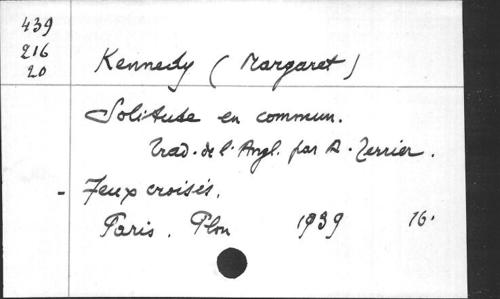 439
216
20
Kennedy (Margaret)
Solitude en commun.
Trad. de l'Angl. par A. Terrier.
- Feux croisés.
Paris. Plon 1939 16.